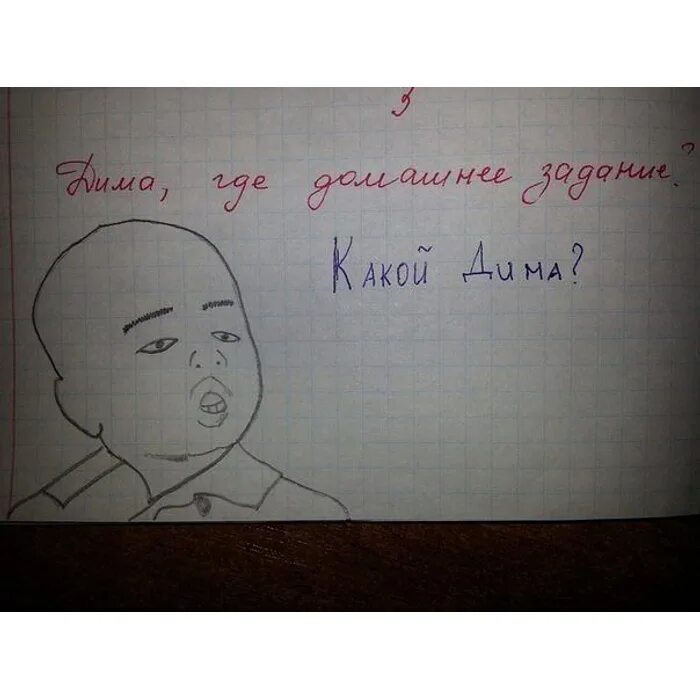 3
Дима, где домашнее задание?
Какой Дима?